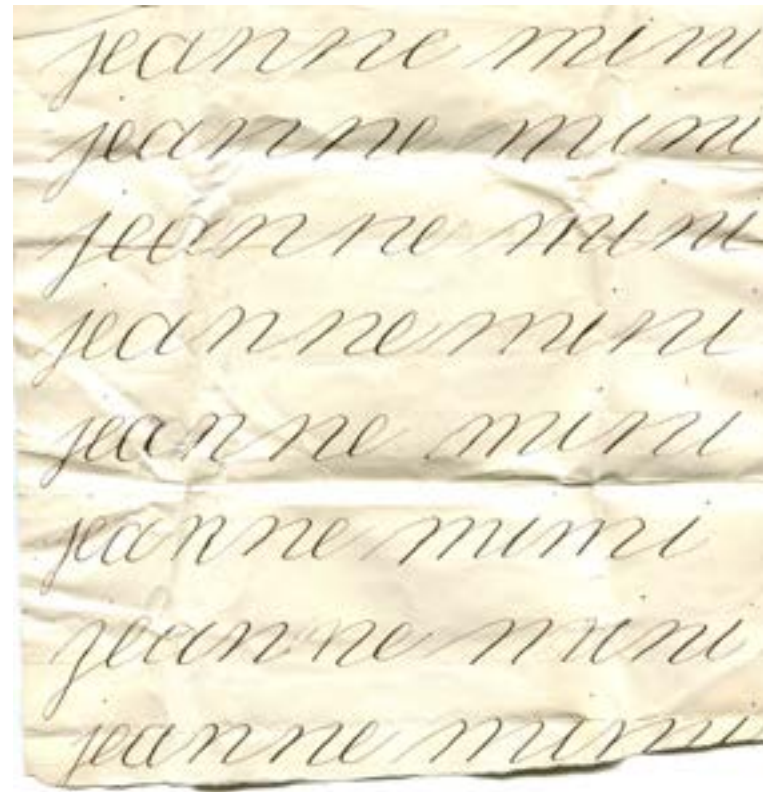 jeanne mini
jeanne mini
jeanne mini
jeanne mini
jeanne mini
jeanne mimi
jeanne mini
jeanne mimi